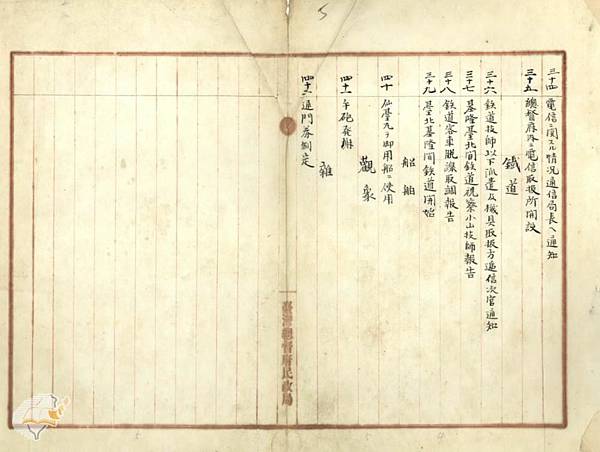 三十四 電信ニ関スル情況通信局長ヘ通知
三十五 總督府内ニ電信取扱所開設
鐵道
三十六 鉄道技師以下派遣及機具取扱方逓信次官通知
三十七 基隆臺北間鉄道視察小山技師報告
三十八 鉄道客車脱線取調報告
三十九 臺北基隆間鉄道開始
船舶
四十 仙臺丸ヲ御用船ニ使用
觀象
四十一 午砲発
雜
四十二 通門券制定
臺灣總督府民政局